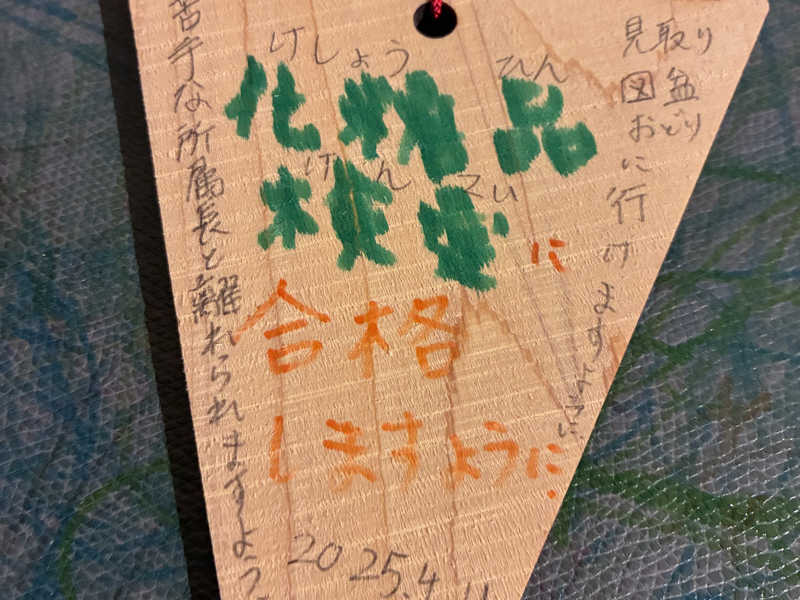 見取り
図盆
おどり
に行けますように
けしょうひん
化粧品
けんてい
検定に
合格
しますように
苦手な所属長と離れられますよう
2025.4.